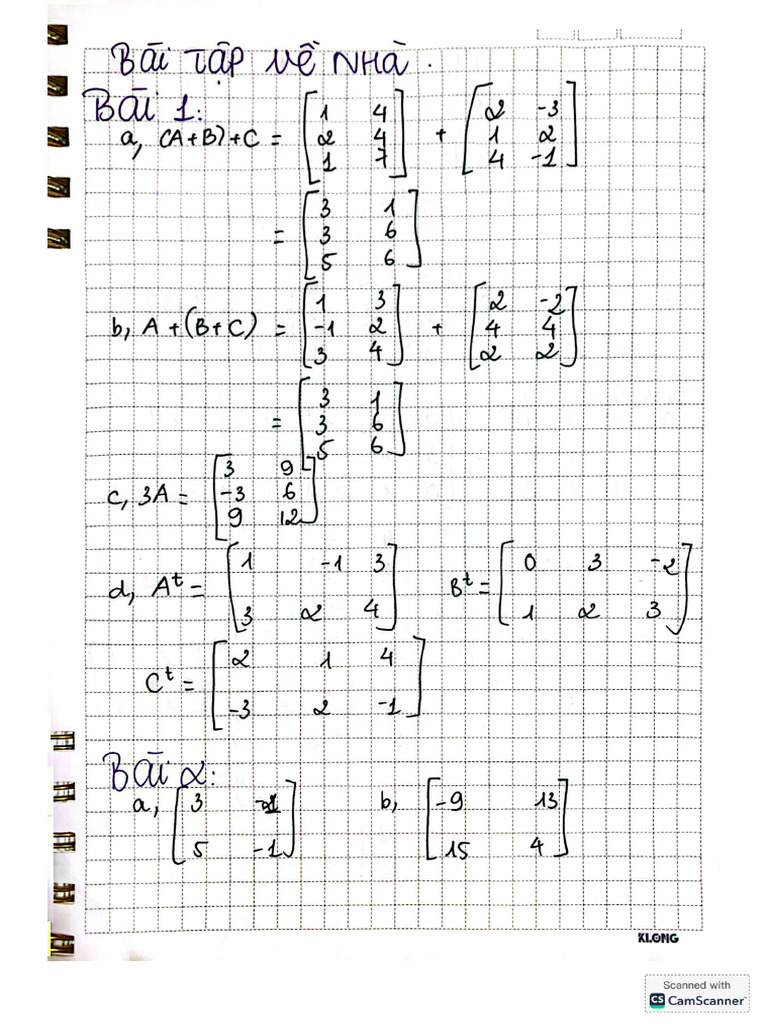 Bài tập về nhà.
Bài 1:
a, (A+B)+C = [1 4; 2 4; 1 7] + [2 -3; 1 2; 4 -1]
= [3 1; 3 6; 5 6]
b, A+(B+C) = [1 3; -1 2; 3 4] + [2 -2; 4 4; 2 2]
= [3 1; 3 6; 5 6]
c, 3A = [3 9; -3 6; 9 12]
d, Aᵗ = [1 -1 3; 3 2 4] Bᵗ = [0 3 -2; 1 2 3]
Cᵗ = [2 1 4; -3 2 -1]
Bài 2:
a, [3 ; 5 -1] b, [-9 13; 15 4]
KLONG
Scanned with
CS CamScanner